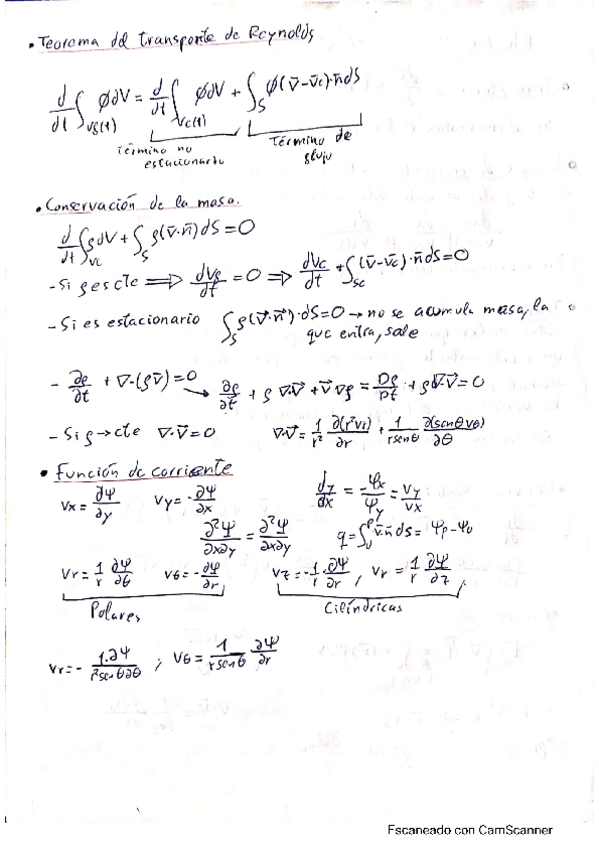 • Teorema del transporte de Reynolds
d/dt ∫_Vf(t) ϕdV = d/dt ∫_Vc(t) ϕdV + ∫_S ϕ(v̄-v̄c)·n̄ds
Término no estacionario
Término de flujo
• Conservación de la masa.
d/dt ∫_Vc ρdV + ∫_S ρ(v̄·n̄)dS = 0
- Si ρ es cte ⟹ dVf/dt = 0 ⟹ dVc/dt + ∫_Sc (v̄-v̄c)·n̄dS = 0
- Si es estacionario ∫_S ρ(v̄·n̄)·dS = 0 → no se acumula masa, la
que entra, sale
- ∂ρ/∂t + ∇·(ρv̄) = 0 → ∂ρ/∂t + ρ∇·v̄ + v̄∇ρ = Dρ/Dt + ρ∇·v̄ = 0
- Si ρ → cte ∇·v̄ = 0 ∇·v̄ = 1/r² ∂(r²vr)/∂r + 1/(rsenθ) ∂(senθvθ)/∂θ
• Función de corriente
vx = ∂Ψ/∂y vy = -∂Ψ/∂x dy/dx = -Ψx/Ψy = vy/vx
∂²Ψ/∂x∂y = ∂²Ψ/∂x∂y q = ∫_0^P v̄·n̄ds = Ψp - Ψ0
vr = 1/r ∂Ψ/∂θ vθ = -∂Ψ/∂r vz = -1/r·∂Ψ/∂r , vr = 1/r ∂Ψ/∂z
Polares Cilíndricas
vr = - 1·∂Ψ/r²senθ∂θ ; vθ = 1/(rsenθ) ∂Ψ/∂r
Escaneado con CamScanner